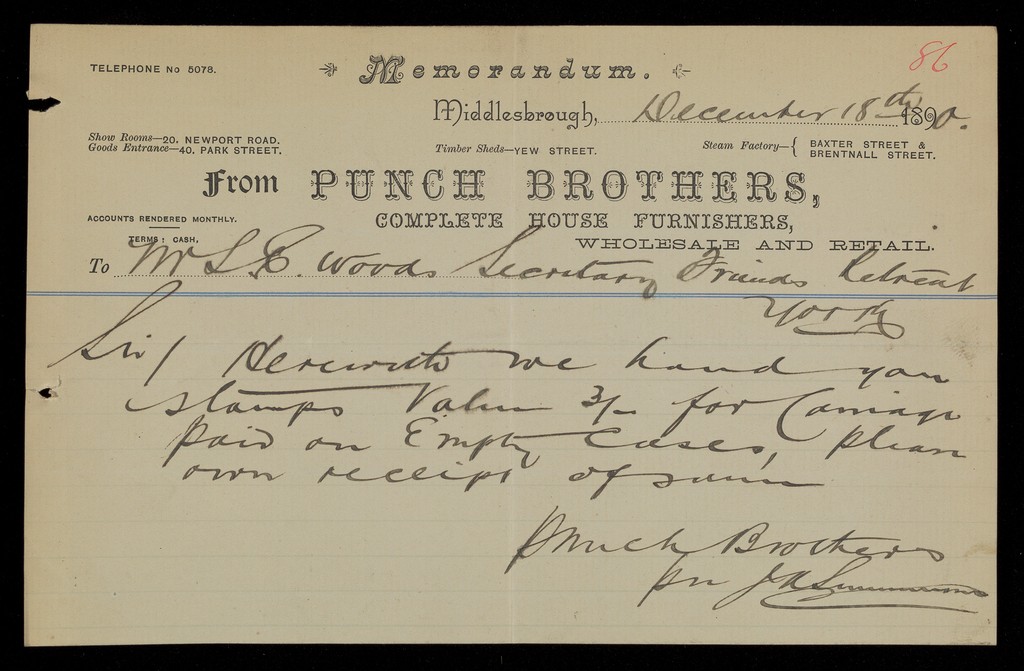 86
TELEPHONE No 5078.
Memorandum.
Middlesbrough, December 18th 1890.
Show Rooms—20. NEWPORT ROAD.
Goods Entrance—40. PARK STREET.
Timber Sheds—YEW STREET.
Steam Factory—{ BAXTER STREET &
BRENTNALL STREET.
From PUNCH BROTHERS,
ACCOUNTS RENDERED MONTHLY.
COMPLETE HOUSE FURNISHERS,
TERMS: CASH.
WHOLESALE AND RETAIL.
To Mr S. Woods Secretary Friends Retreat
York
Sir/ Herewith we hand you
stamps Value 3/- for Carriage
paid on Empty Cases, please
own receipt of same
Punch Brothers
per J A Simmons